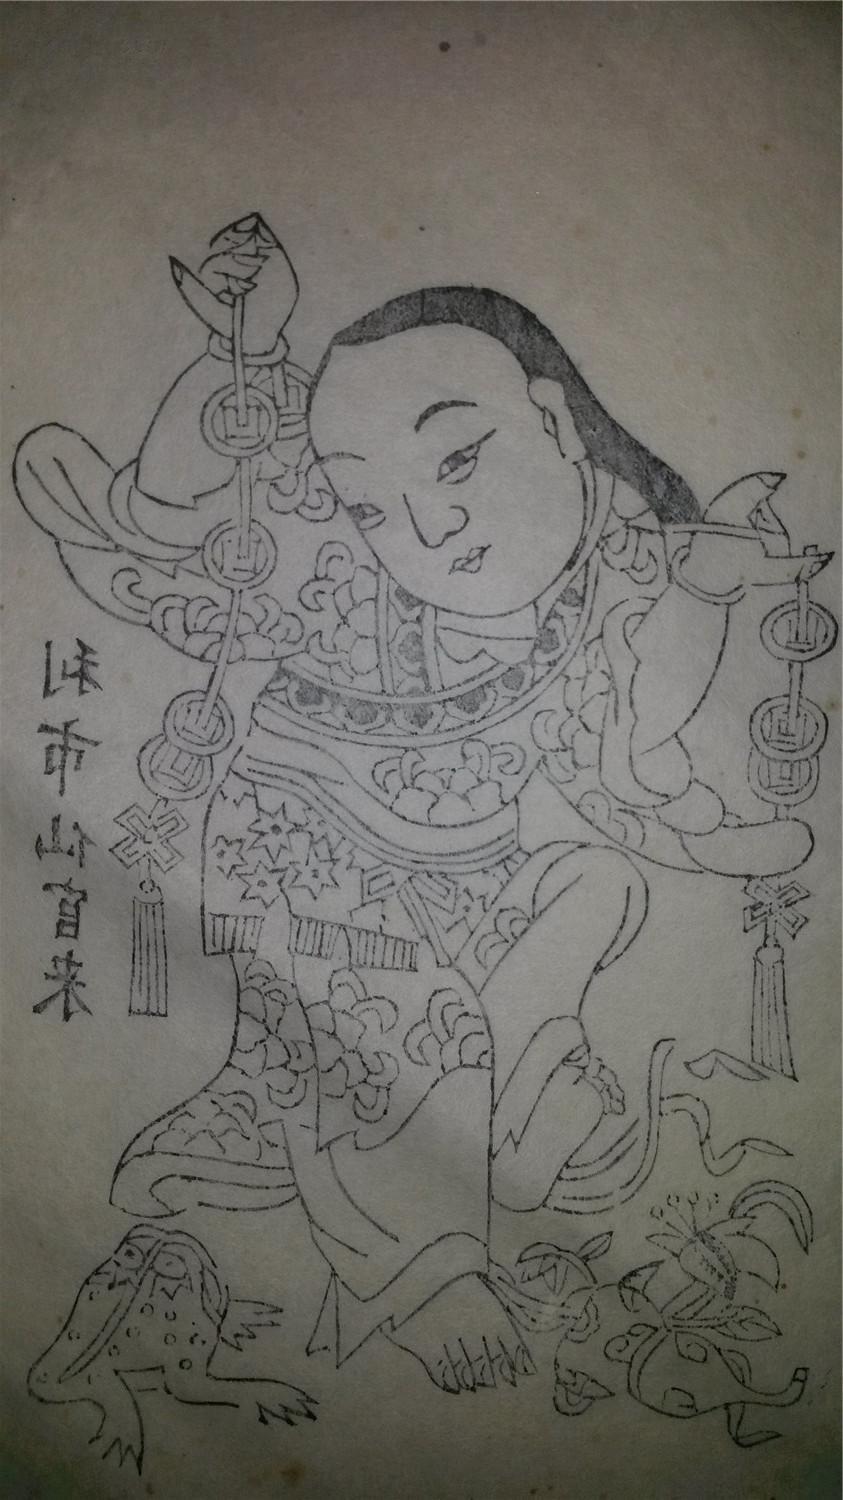 利市仙官来